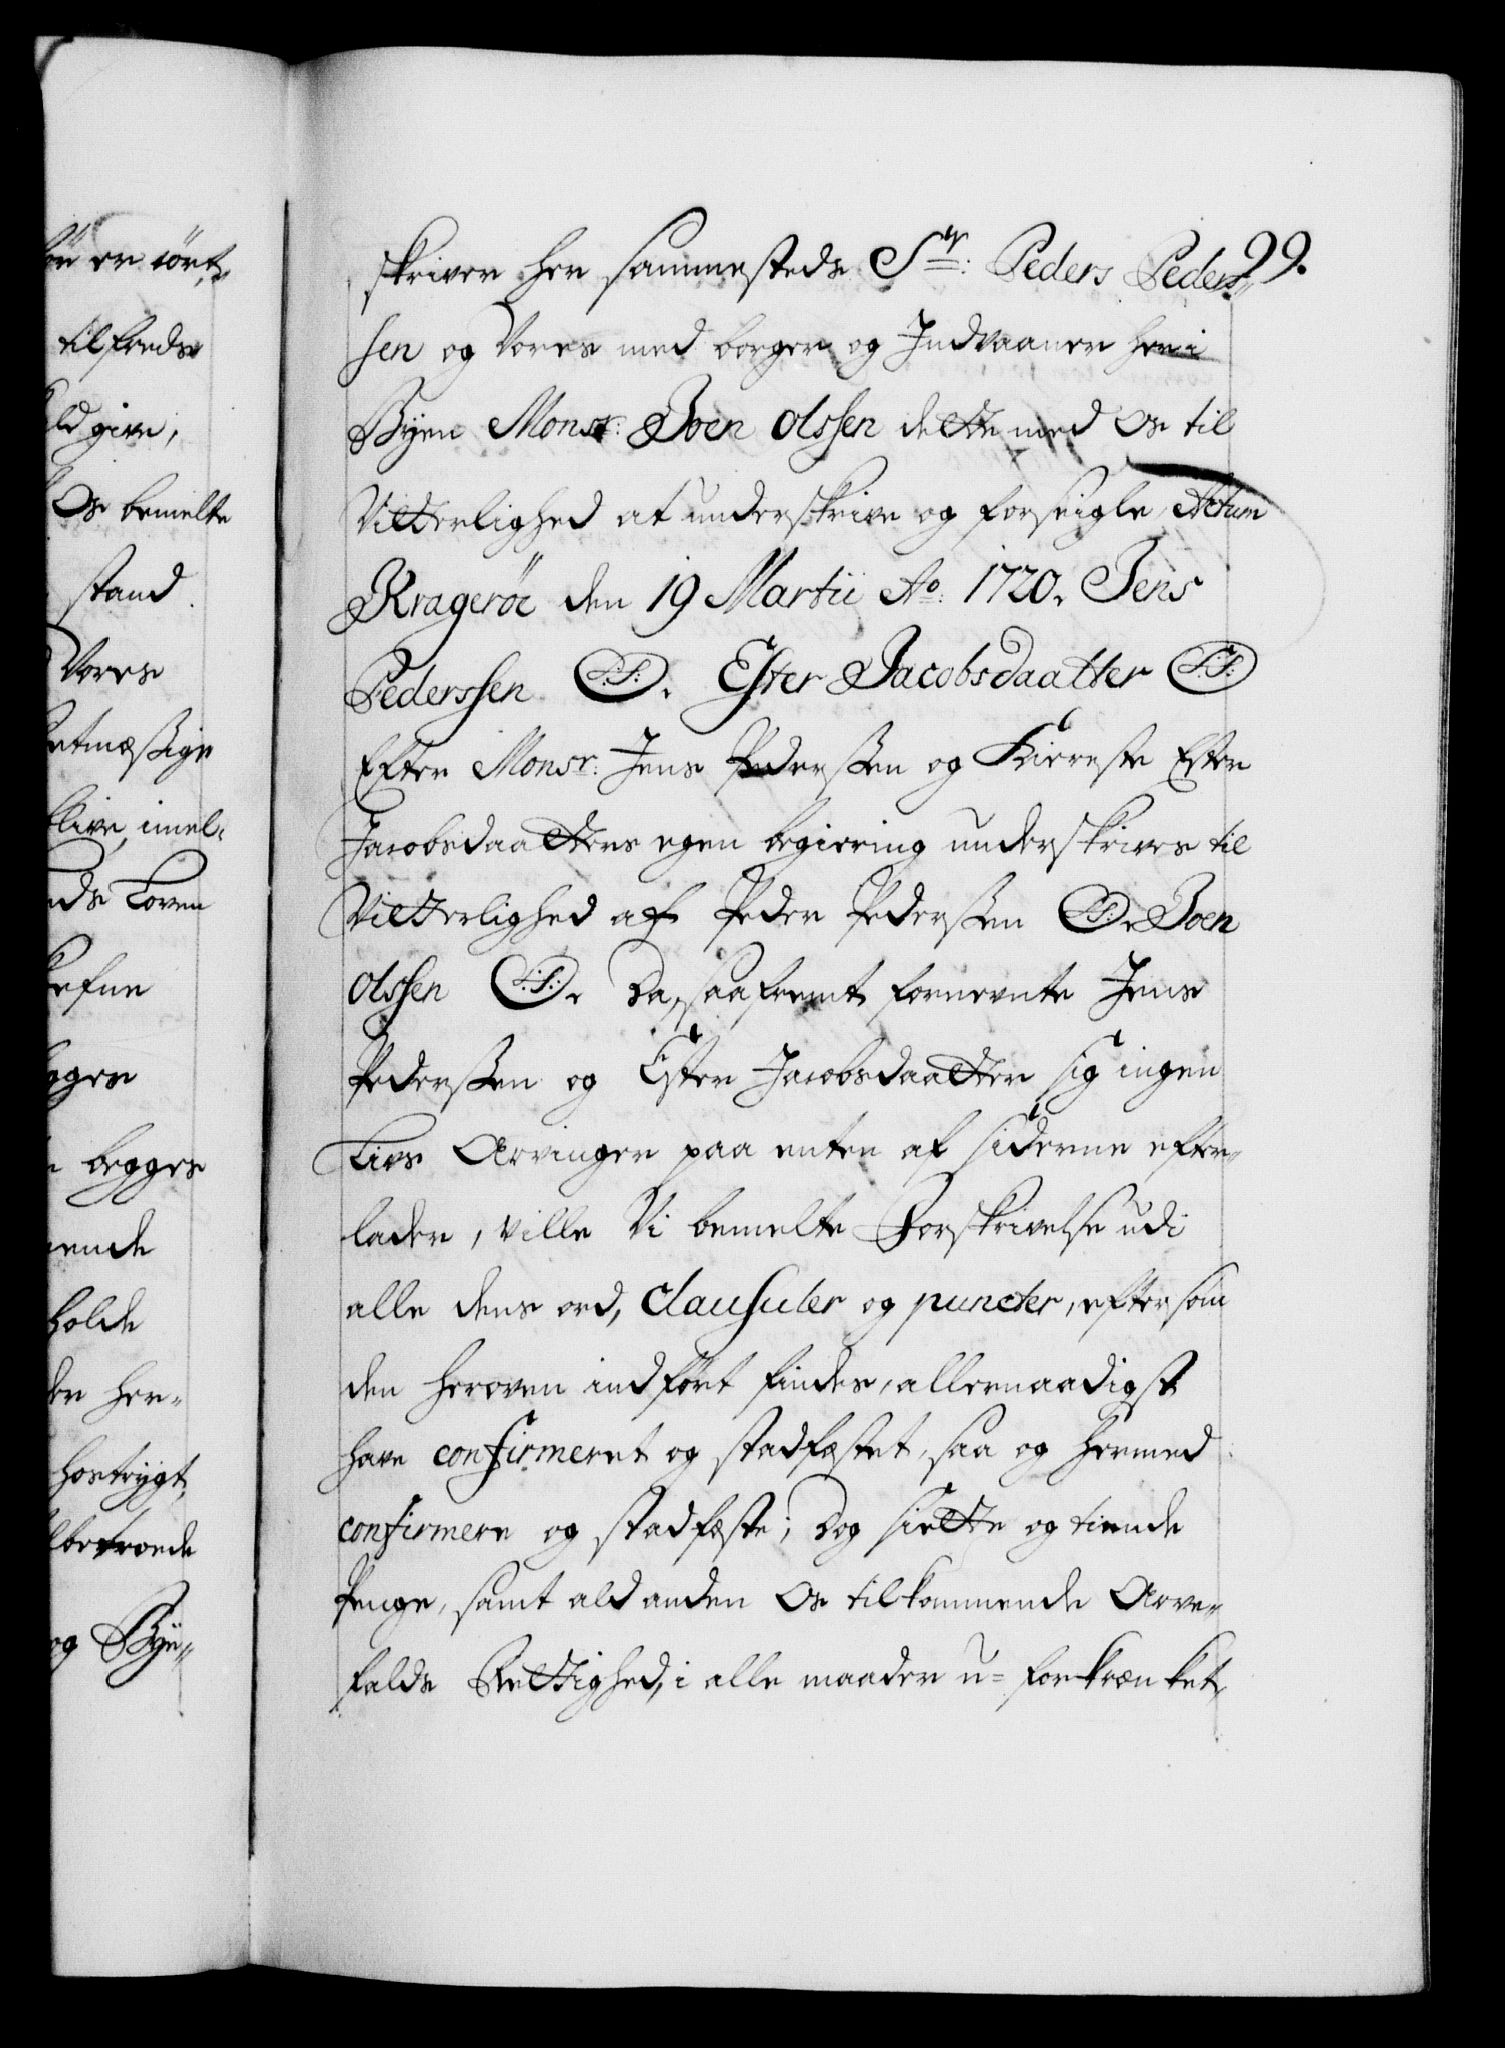 99.
skriver her sammesteds Sr: Peders Peders-
sen og Vores med borger og Indvaaner her i
Byen Monsr: Joen Olssen dette med Os til
Vitterlighed at underskrive og forseigle, Actum
Kragerøe den 19 Martii Ao: 1720. Jens
Pederssen L.S. Ester Jacobsdaatter L.S.
Efter Monsr: Jens Pederssen og Kiereste Ester
Jacobsdaatters egen begiering underskrives til
Vitterlighed af Peder Pederssen L.S. Joen
Olssen L.S. Da, saafremt fornevnte Jens
Pederssen og Ester Jacobsdaatter sig ingen
Livs Arvinger paa enten af siderne efter-
lader, ville Vi bemelte Forskrivelse udi
alle dens ord, Clausuler og puncter, eftersom
den heroven indført findes, allernaadigst
have confirmeret og stadfæstet, saa og hermed
confirmere og stadfæste; Dog siette og tiende
Penge, samt ald anden Os tilkommende Arve-
falds Rettighed, i alle maader u-forkrænket,
er tørt,
tilfreds
give,
Os bemelte
stand
Vores
retmæssige
blive, imel-
Loven
begges
holde
her-
hostrygt,
og Bye-